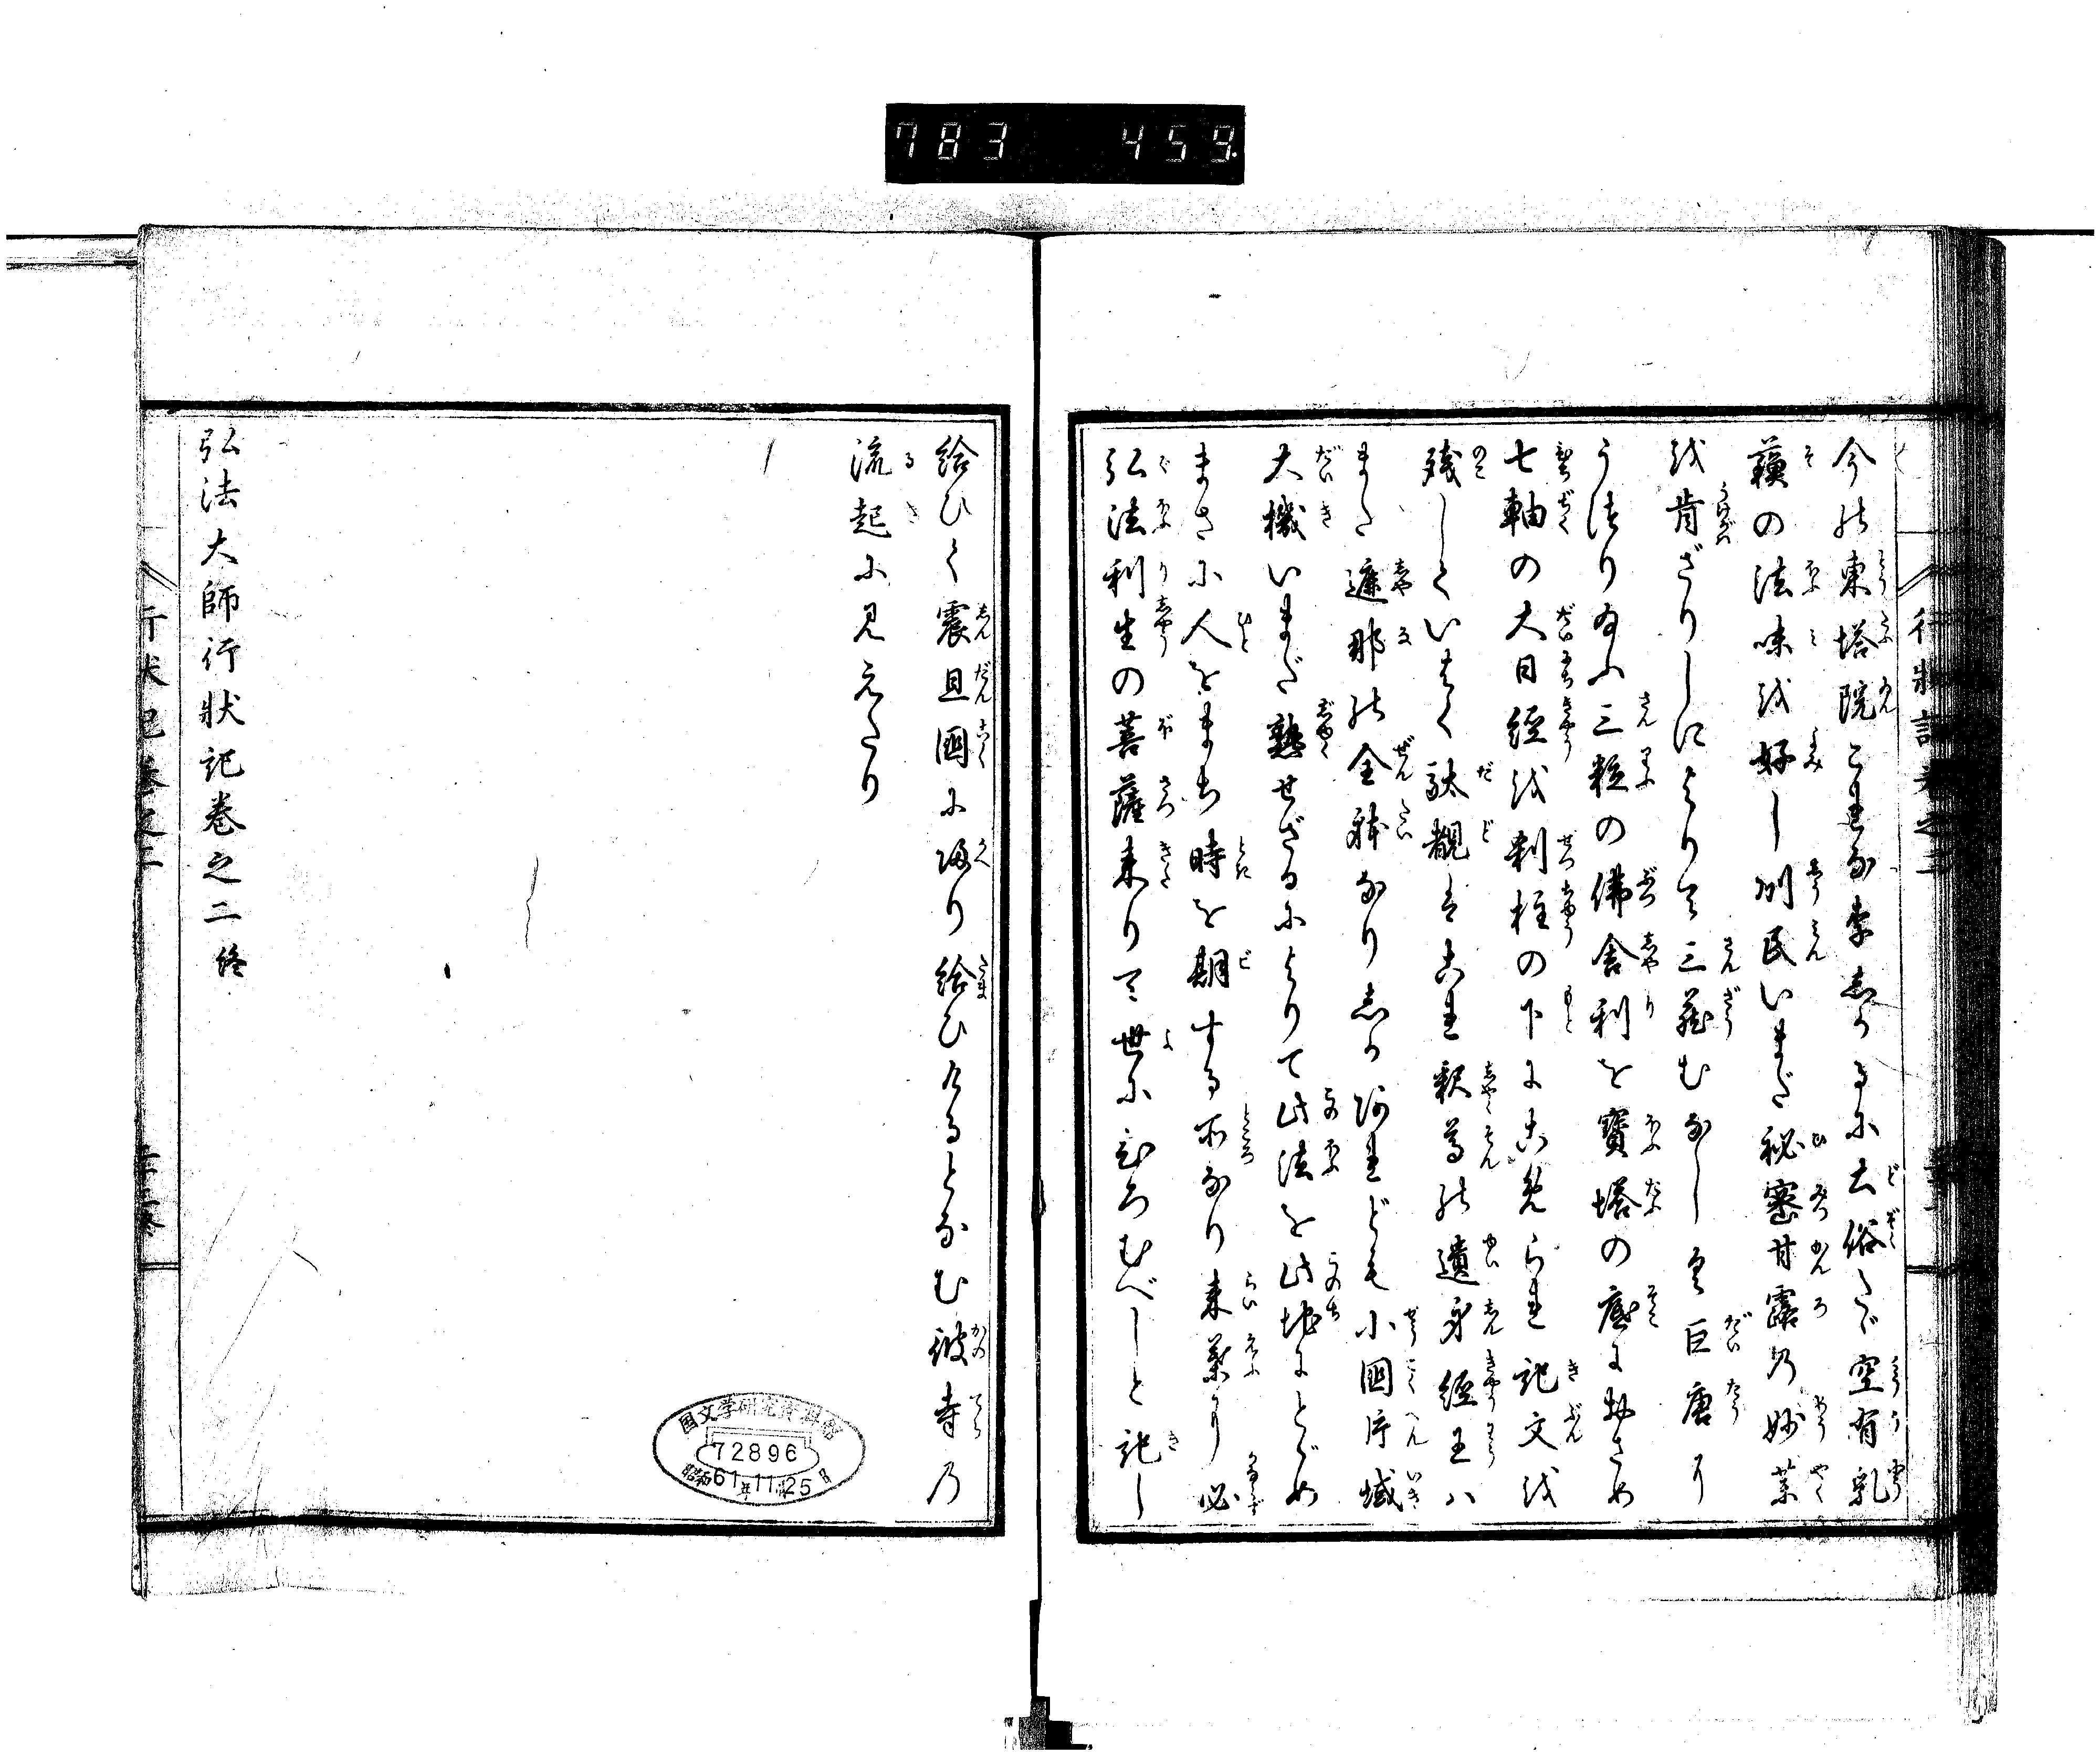 783 459.
行状記巻之二
今の東塔院これなり志かるに土俗たゞ空有乳
蘓の法味を好し州民いまだ秘密甘露乃妙薬
を肯ざりしによりて三蔵むなしく巨唐に
うつり給ふ三粒の佛舎利を寶塔の底におさめ
七軸の大日経を刹柱の下にこめられ記文を
残していはく馱覩はこれ釈尊の遺身経王ハ
また遮那の全躰なり志かれども小國片域
大機いまだ熟せざるによりて此法を此地にとゞめ
まさに人をまち時を期する所なり来葉に必
弘法利生の菩薩来りて世にひろむべしと記し
給ひて震旦國に帰り給ひけるとなむ彼寺乃
流起に見えたり
弘法大師行状記巻之二終
国文学研究資料館
72896
昭和61年11.25月